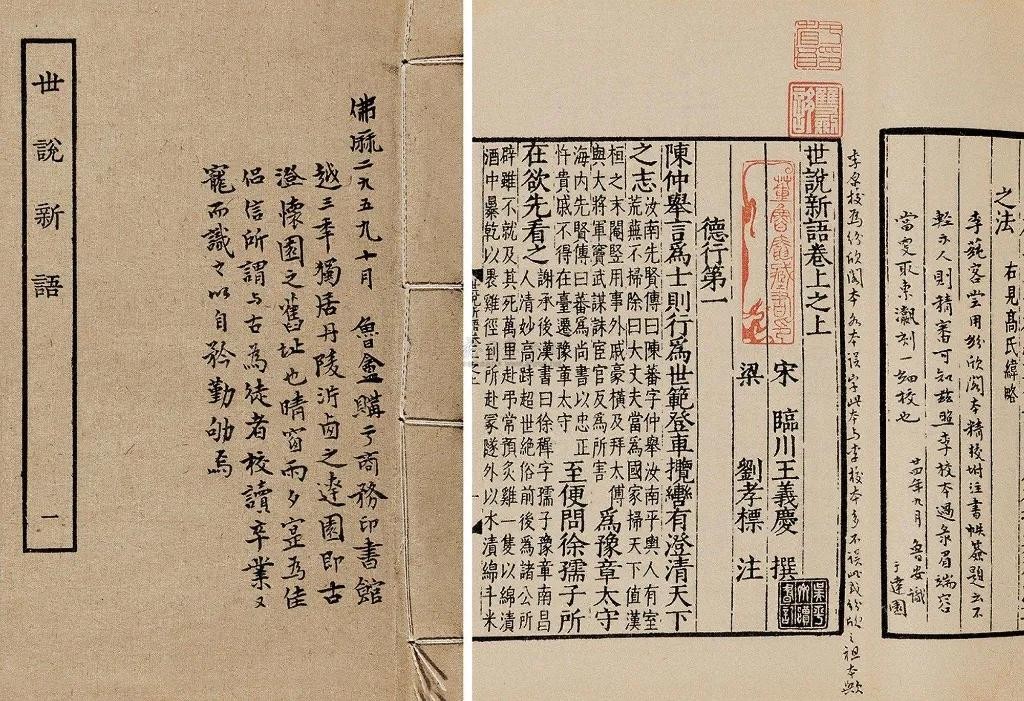 世說新語 一
佛厤二九五九十月 魯盦購于商務印書館
越三秊獨居丹陵沜卤之達園即古
澄懷園之舊址也晴窗雨夕寔為佳
侶信所謂与古為徒者校讀卒業又
寵而識之以自矜勤劬焉
之法 右見高氏緯略
李蒓客嘗用紛欣閣本精校坿注書帙簽題云不
輕示人則精審可知茲照李校本過彔眉端容
當更取東瀛刻一細校也
廿四年九月 魯安識
于達園
校為紛欣閣本 本誤字此本与李校本多不誤此或紛欣之祖本歟
世說新語卷上之上
宋 臨川王義慶 撰
梁 劉孝標 注
董魯盦藏書印
德行第一
陳仲舉言爲士則行爲世範登車攬轡有澄清天下
之志
汝南先賢傳曰陳蕃字仲舉汝南平輿人有室
荒蕪不掃除曰大丈夫當爲國家掃天下值漢
桓之末閹豎用事外戚豪橫及拜太傅
與大將軍竇武謀誅宦官反爲所害
爲豫章太守
海內先賢傳曰蕃爲尚書以忠正
忤貴戚不得在臺遷豫章太守
至便問徐孺子所
在欲先看之
謝承後漢書曰徐穉字孺子豫章南昌
人清妙高跱超世絕俗前後爲諸公所
辟雖不就及其死萬里赴弔常預炙雞一隻以綿漬
酒中暴乾以裹雞徑到所赴冢隧外以水漬綿斗米